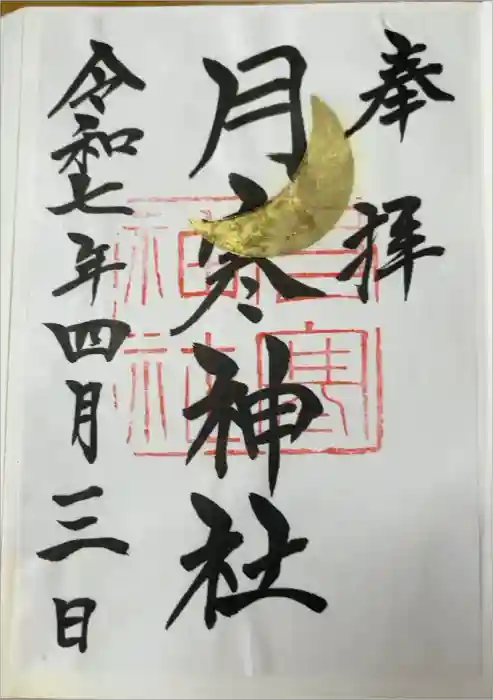 奉拝
月寒神社
令和七年四月三日
月寒神社